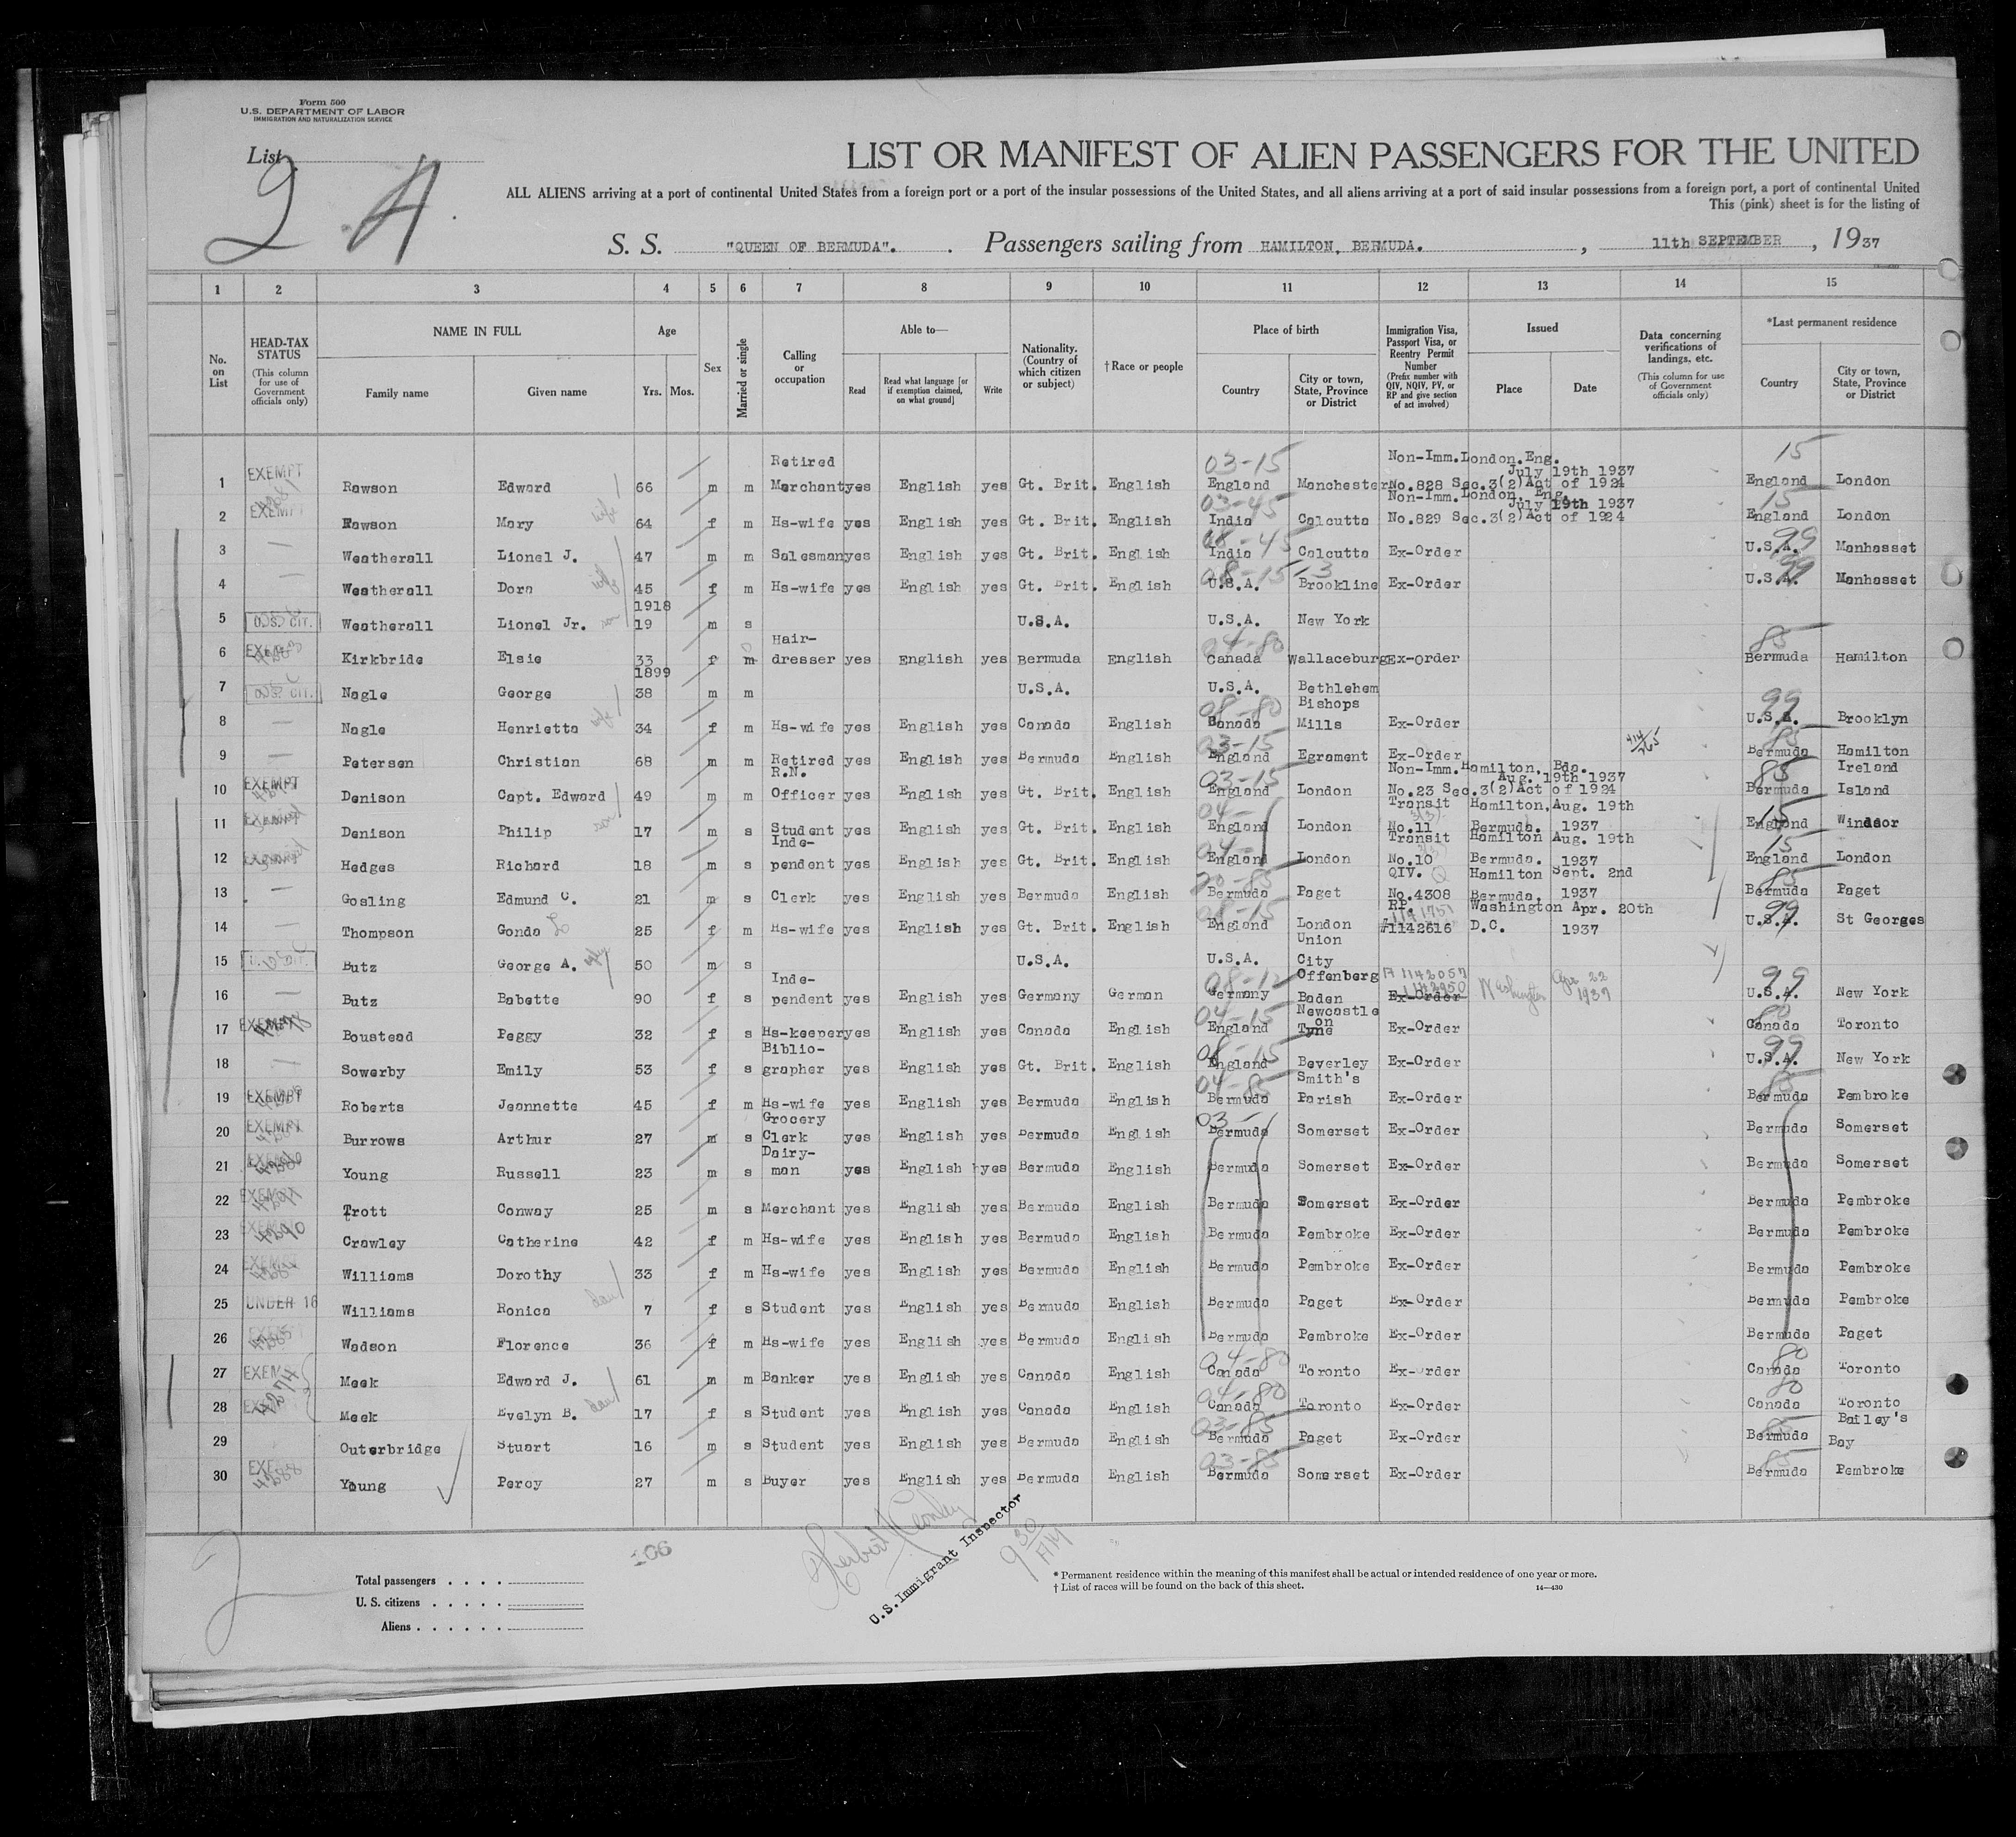 Form 500
U.S. DEPARTMENT OF LABOR
IMMIGRATION AND NATURALIZATION SERVICE
List
2 A.
LIST OR MANIFEST OF ALIEN PASSENGERS FOR THE UNITED
ALL ALIENS arriving at a port of continental United States from a foreign port or a port of the insular possessions of the United States, and all aliens arriving at a port of said insular possessions from a foreign port, a port of continental United
This (pink) sheet is for the listing of
S. S. "QUEEN OF BERMUDA". Passengers sailing from HAMILTON, BERMUDA. , 11th SEPTEMBER , 1937
1 2 3 4 5 6 7 8 9 10 11 12 13 14 15
No. on List
HEAD-TAX STATUS (This column for use of Government officials only)
NAME IN FULL
Family name Given name
Age
Yrs. Mos.
Sex
Married or single
Calling or occupation
Able to—
Read Read what language [or if exemption claimed, on what ground] Write
Nationality. (Country of which citizen or subject)
† Race or people
Place of birth
Country City or town, State, Province or District
Immigration Visa, Passport Visa, or Reentry Permit Number (Prefix number with QIV, NQIV, PV, or RP and give section of act involved)
Issued
Place Date
Data concerning verifications of landings, etc. (This column for use of Government officials only)
*Last permanent residence
Country City or town, State, Province or District
1 EXEMPT Rawson Edward 66 m m Retired Merchant yes English yes Gt. Brit. English 03-15 England Manchester Non-Imm. London. Eng. July 19th 1937 No.828 Sec.3(2)Act of 1924 15 England London
2 EXEMPT Rawson Mary wife 64 f m Hs-wife yes English yes Gt. Brit. English 03-45 India Calcutta Non-Imm. London, Eng. July 19th 1937 No.829 Sec.3(2)Act of 1924 15 England London
3 — Weatherall Lionel J. 47 m m Salesman yes English yes Gt. Brit. English 08-45 India Calcutta Ex-Order 99 U.S.A. Manhasset
4 — Weatherall Dora wife 45 f m Hs-wife yes English yes Gt. Brit. English 08-15 U.S.A. Brookline Ex-Order 99 U.S.A. Manhasset
5 U.S. CIT. Weatherall Lionel Jr. son 1918 19 m s U.S.A. U.S.A. New York
6 Kirkbride Elsie 33 f m Hair-dresser yes English yes Bermuda English 04-80 Canada Wallaceburg Ex-Order 85 Bermuda Hamilton
7 U.S. CIT. Nagle George 1899 38 m m U.S.A. U.S.A. Bethlehem
8 — Nagle Henrietta wife 34 f m Hs-wife yes English yes Canada English 08-80 Canada Bishops Mills Ex-Order 99 U.S.A. Brooklyn
9 — Petersen Christian 68 m m Retired yes English yes Bermuda English 03-15 England Egrament Ex-Order 85 Bermuda Hamilton
10 EXEMPT Denison Capt. Edward 49 m m R.N. Officer yes English yes Gt. Brit. English 03-15 England London Non-Imm. Hamilton, Bda. Aug. 19th 1937 No.23 Sec.3(2)Act of 1924 85 Bermuda Ireland Island
11 Denison Philip son 17 m s Student yes English yes Gt. Brit. English 04- England London Transit No.11 Hamilton, Bermuda. Aug. 19th 1937 15 England Windsor
12 Hedges Richard 18 m s Inde-pendent yes English yes Gt. Brit. English 04- England London Transit No.10 Hamilton Bermuda. Aug. 19th 1937 15 England London
13 — Gosling Edmund C. 21 m s Clerk yes English yes Bermuda English 20-85 Bermuda Paget QIV. No.4308 Hamilton Bermuda. Sept. 2nd 1937 85 Bermuda Paget
14 — Thompson Gonda 25 f m Hs-wife yes English yes Gt. Brit. English 08-15 England London RP. #1142616 Washington D.C. Apr. 20th 1937 99 U.S.A. St Georges
15 Butz George A. 50 m s U.S.A. U.S.A. Union City
16 — Butz Babette 90 f s Inde-pendent yes English yes Germany German 08-12 Germany Offenberg Baden Ex-Order Washington Apr 22 1937 99 U.S.A. New York
17 Boustead Peggy 32 f s Hs-keeper yes English yes Canada English 04-15 England Newcastle on Tyne Ex-Order 80 Canada Toronto
18 — Sowerby Emily 53 f s Biblio-grapher yes English yes Gt. Brit. English 08-15 England Beverley Ex-Order 99 U.S.A. New York
19 EXEMPT Roberts Jeannette 45 f m Hs-wife yes English yes Bermuda English 04-85 Bermuda Smith's Parish Ex-Order 85 Bermuda Pembroke
20 EXEMPT Burrows Arthur 27 m s Grocery Clerk yes English yes Bermuda English 03- Bermuda Somerset Ex-Order Bermuda Somerset
21 Young Russell 23 m s Dairy-man yes English yes Bermuda English Bermuda Somerset Ex-Order Bermuda Somerset
22 Trott Conway 25 m s Merchant yes English yes Bermuda English Bermuda Somerset Ex-Order Bermuda Pembroke
23 Crawley Catherine 42 f m Hs-wife yes English yes Bermuda English Bermuda Pembroke Ex-Order Bermuda Pembroke
24 Williams Dorothy 33 f m Hs-wife yes English yes Bermuda English Bermuda Pembroke Ex-Order Bermuda Pembroke
25 UNDER 16 Williams Ronica dau 7 f s Student yes English yes Bermuda English Bermuda Paget Ex-Order Bermuda Pembroke
26 Wadson Florence 36 f m Hs-wife yes English yes Bermuda English Bermuda Pembroke Ex-Order Bermuda Paget
27 Meek Edward J. 61 m m Banker yes English yes Canada English 04-80 Canada Toronto Ex-Order 80 Canada Toronto
28 Meek Evelyn B. dau 17 f s Student yes English yes Canada English 04-80 Canada Toronto Ex-Order 80 Canada Toronto
29 Outerbridge Stuart 16 m s Student yes English yes Bermuda English 03-85 Bermuda Paget Ex-Order 85 Bermuda Bailey's Bay
30 4288 Young Percy 27 m s Buyer yes English yes Bermuda English 03-85 Bermuda Somerset Ex-Order 85 Bermuda Pembroke
U.S. Immigrant Inspector
9 30 AM
Total passengers . . . .
U. S. citizens . . . . .
Aliens . . . . . .
* Permanent residence within the meaning of this manifest shall be actual or intended residence of one year or more.
† List of races will be found on the back of this sheet.
14—430